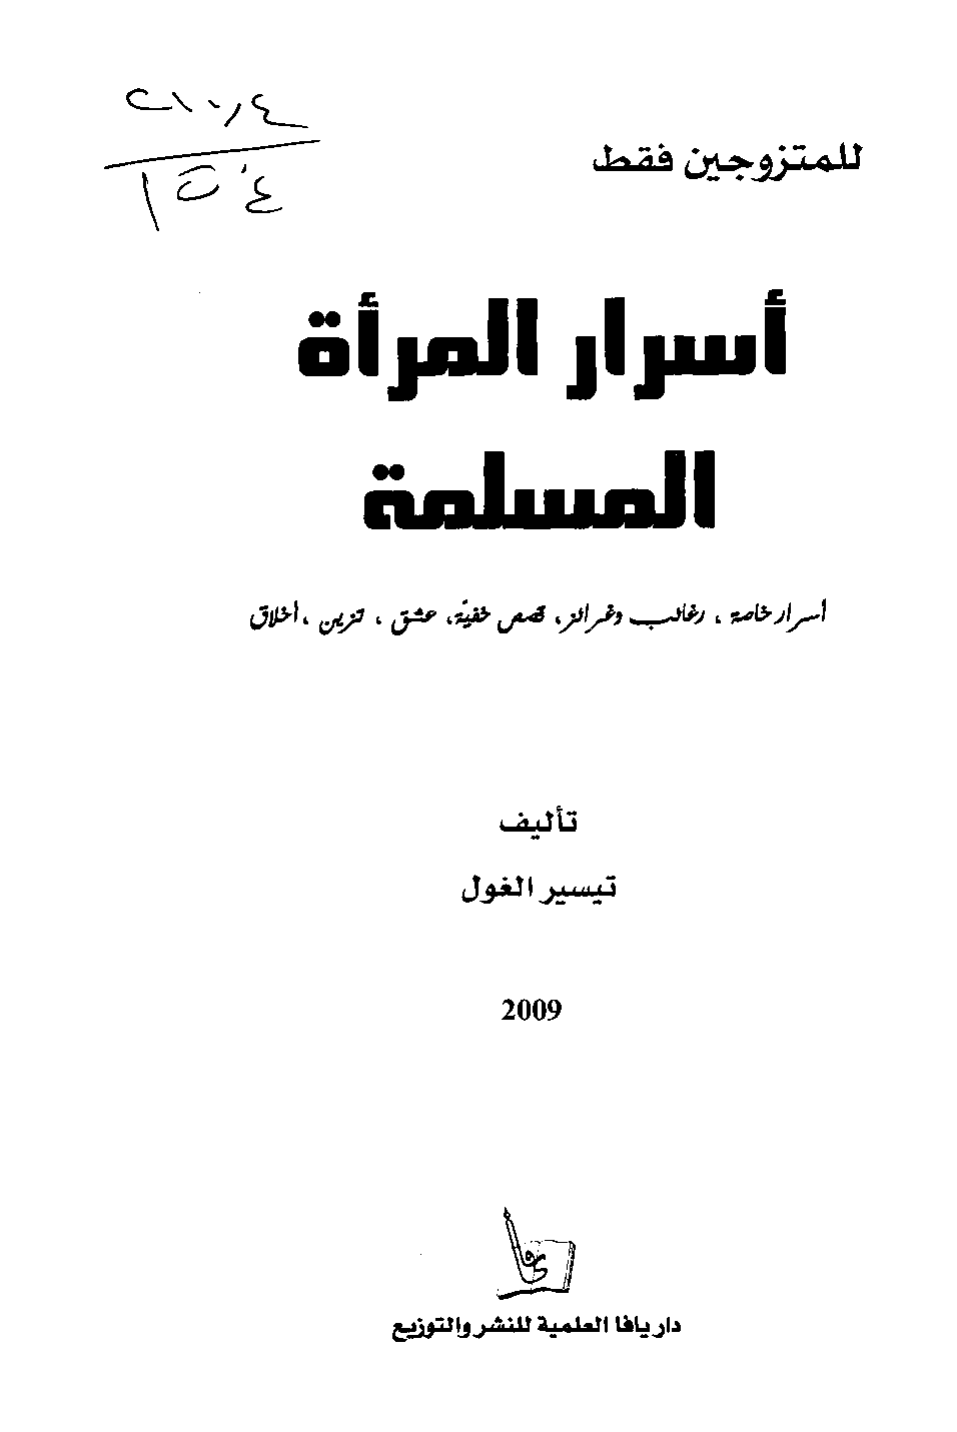 للمتزوجين فقط
أسرار المرأة
المسلمة
أسرار خاصة ، رغائب وغرائز، قصص خفيّة، عشق ، تزين ، أخلاق
تأليف
تيسير الغول
2009
دار يافا العلمية للنشر والتوزيع